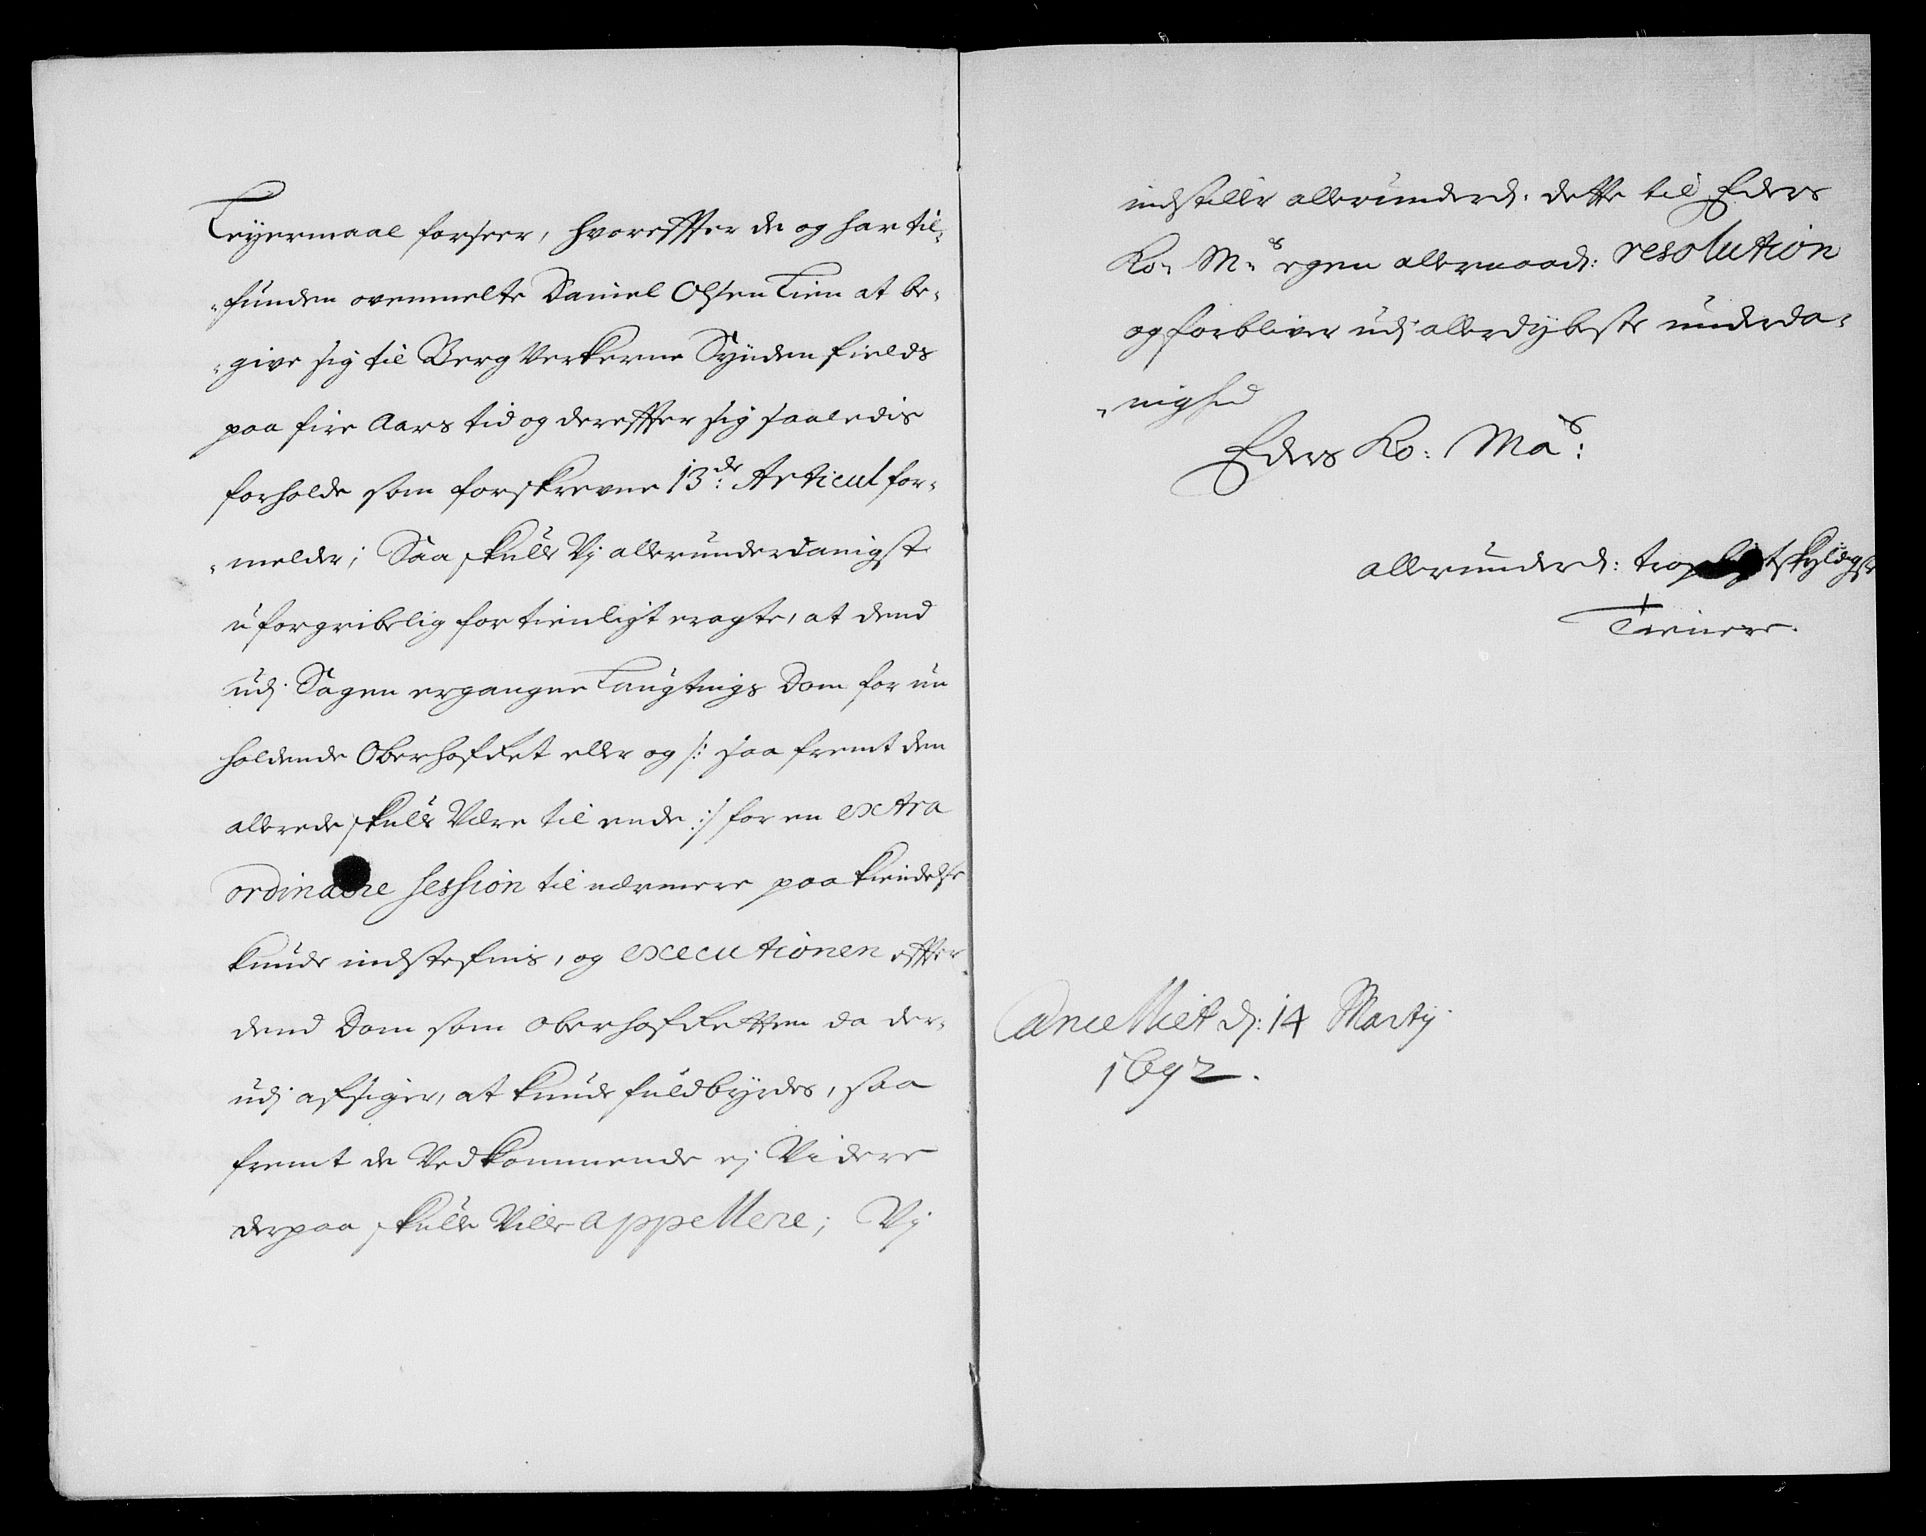 Leyermaal forseer, hvoreffter de og har til-
-funden ovenmelte Daniel Olsen Lien at be-
-give sig til Berg Verkerne Synden fields
paa fire Aars tid og dereffter sig saaledis
forholde som forskrevne 13de: Articul for-
-melder; Saa skulle Vj allerunderdanigst
uforgribelig fortienligt eragte, at dend
udj Sagen ergangne Laugtings Dom for nu
holdende Oberhof Ret eller og /: saa fremt den
allerede skulle Være til ende :/ for en extra
ordinaere session til nærmere paa kiendelse
kunde indstefnis, og executionen effter
dend Dom som oberhof Retten da der-
udj afsiger, at kunde fuldbyrdes, saa
fremt de Vedkommende ej Videre
derpaa skulle Ville appellere; Vj
indstille allerunderd: dette til Eders
Ko: M:s egen allernaad: resolution
og forbliver udj allerdybeste underda-
-nighed
Eders Ko: Ma:s
allerunderd: troepligtskyldigste
Tienere.
Cancelliet d: 14 Martij
1692.